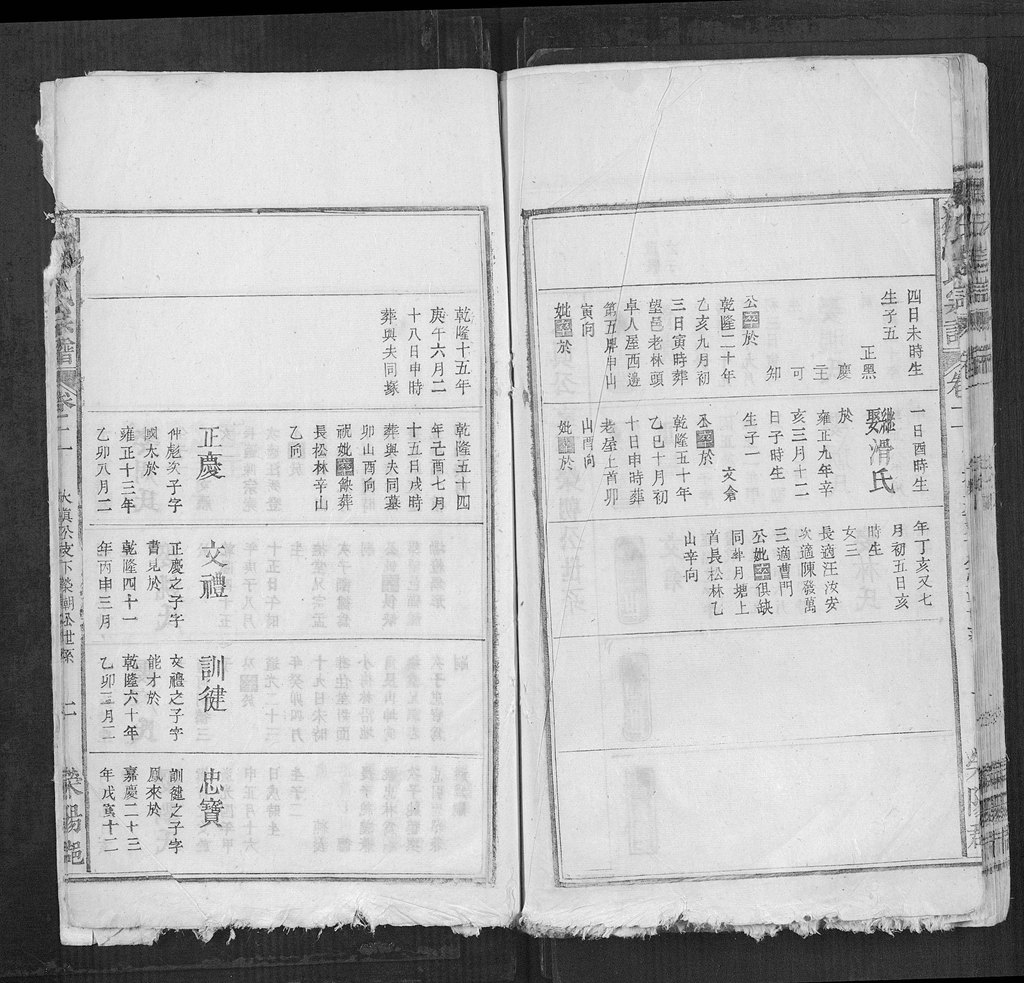 四日未時生
生子五
正黑
慶
主
可
知
公卒於
乾隆二十年
乙亥九月初
三日寅時葬
望邑老林頭
卓人屋西邊
第五牌申山
寅向
妣卒於
一日酉時生
繼娶滑氏
於
雍正九年辛
亥三月十二
日子時生
生子一
文倉
卒於
乾隆五十年
乙巳十月初
十日申時葬
老屋上首卯
山酉向
妣卒於
年丁亥又七
月初五日亥
時生
女三
長適汪汝安
次適陳發萬
三適曹門
公妣卒俱缺
同葬月塘上
首長松林乙
山辛向
乾隆十五年
庚午六月二
十八日申時
葬與夫同塚
乾隆五十四
年己酉七月
十五日戌時
葬與夫同墓
卯山酉向
祝妣卒缺葬
長松林辛山
乙向
正慶
仲彪次子字
國太於
雍正十三年
乙卯八月二
文禮
正慶之子字
書見於
乾隆四十一
年丙申三月
訓健
文禮之子字
能才於
乾隆六十年
乙卯三月三
忠寶
訓健之子字
鳳來於
嘉慶二十三
年戊寅十二
氏宗譜 卷二 二